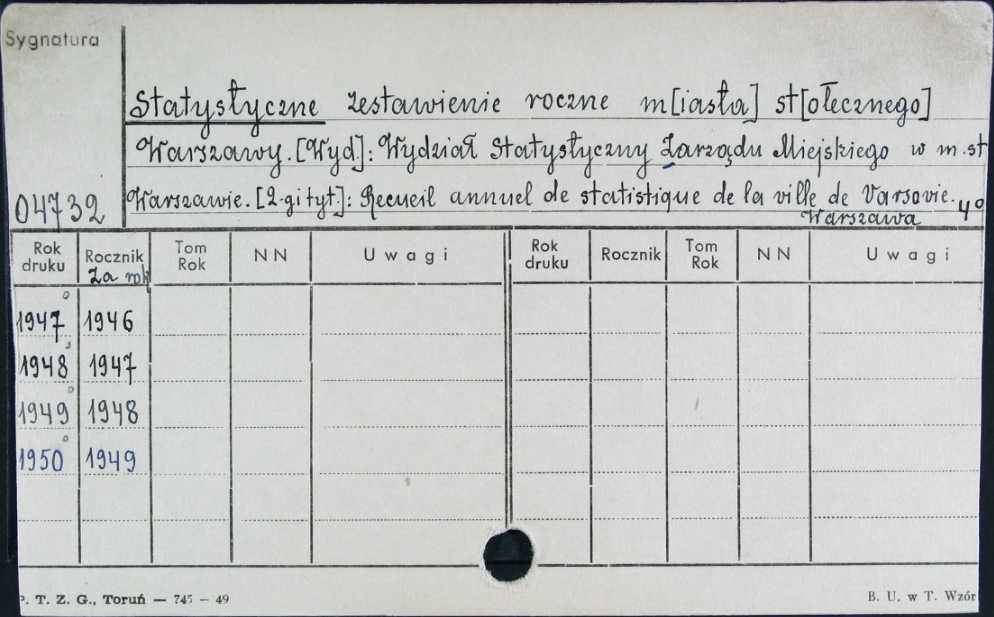 Sygnatura
Statystyczne zestawienie roczne m[iasta] st[ołecznego]
Warszawy. [Wyd]: Wydział Statystyczny Zarządu Miejskiego w m.st
04732
Warszawie. [2-gi tyt.]: Recueil annuel de statistique de la ville de Varsovie. 4°
Warszawa
Rok druku Rocznik Tom Rok NN Uwagi Rok druku Rocznik Tom Rok NN Uwagi
Za rok
1947 1946
1948 1947
1949 1948
1950 1949
P. T. Z. G., Toruń — 745 — 49 B. U. w T. Wzór